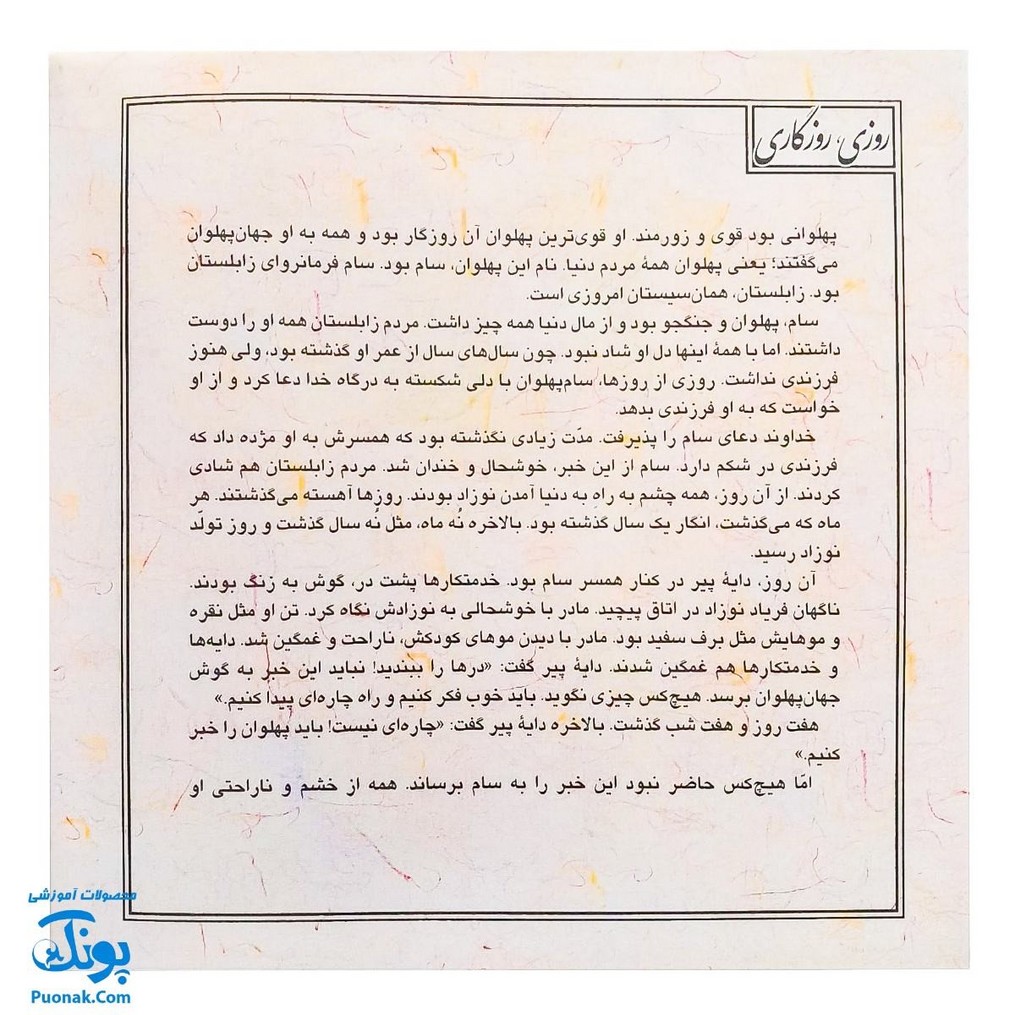 روزی، روزگاری
پهلوانی بود قوی و زورمند. او قوی‌ترین پهلوان آن روزگار بود و همه به او جهان‌پهلوان
می‌گفتند؛ یعنی پهلوان همهٔ مردم دنیا. نام این پهلوان، سام بود. سام فرمانروای زابلستان
بود. زابلستان، همان‌سیستان امروزی است.
سام، پهلوان و جنگجو بود و از مال دنیا همه چیز داشت. مردم زابلستان همه او را دوست
داشتند. اما با همهٔ اینها دل او شاد نبود. چون سال‌های سال از عمر او گذشته بود، ولی هنوز
فرزندی نداشت. روزی از روزها، سام‌پهلوان با دلی شکسته به درگاه خدا دعا کرد و از او
خواست که به او فرزندی بدهد.
خداوند دعای سام را پذیرفت. مدّت زیادی نگذشته بود که همسرش به او مژده داد که
فرزندی در شکم دارد. سام از این خبر، خوشحال و خندان شد. مردم زابلستان هم شادی
کردند. از آن روز، همه چشم به راهِ به دنیا آمدن نوزاد بودند. روزها آهسته می‌گذشتند. هر
ماه که می‌گذشت، انگار یک سال گذشته بود. بالاخره نُه ماه، مثل نُه سال گذشت و روز تولّد
نوزاد رسید.
آن روز، دایهٔ پیر در کنار همسر سام بود. خدمتکارها پشت در، گوش به زنگ بودند.
ناگهان فریاد نوزاد در اتاق پیچید. مادر با خوشحالی به نوزادش نگاه کرد. تن او مثل نقره
و موهایش مثل برف سفید بود. مادر با دیدن موهای کودکش، ناراحت و غمگین شد. دایه‌ها
و خدمتکارها هم غمگین شدند. دایهٔ پیر گفت: «درها را ببندید! نباید این خبر به گوش
جهان‌پهلوان برسد. هیچ‌کس چیزی نگوید. باید خوب فکر کنیم و راه چاره‌ای پیدا کنیم.»
هفت روز و هفت شب گذشت. بالاخره دایهٔ پیر گفت: «چاره‌ای نیست! باید پهلوان را خبر
کنیم.»
امّا هیچ‌کس حاضر نبود این خبر را به سام برساند. همه از خشم و ناراحتی او
محصولات آموزشی
پونک
Puonak.Com